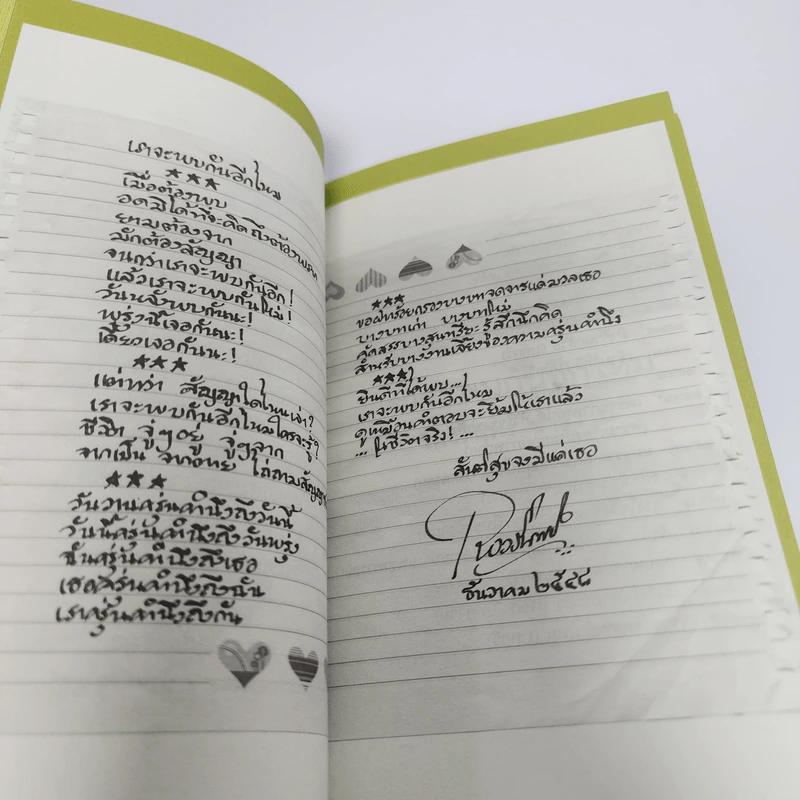 เราจะพบกันอีกไหม
★★★
เมื่อต้องพบ
อดมิได้ที่จะคิดถึงต้องพราก
ยามต้องจาก
มักต้องสัญญา
จนกว่าเราจะพบกันอีก!
แล้วเราจะพบกันใหม่!
วันหลังพบกันนะ!
พรุ่งนี้เจอกันนะ!
เดี๋ยวเจอกันนะ!
★★★
แต่ทว่า สัญญาใดไหนเล่า?
เราจะพบกันอีกไหมใครจะรู้?
ชีวิต จู่ๆอยู่ จู่ๆจาก
จากเป็น จากตาย ไถ่ถามสัญญา
★★★
วันวานครุ่นคำนึงถึงวันนี้
วันนี้ครุ่นคำนึงถึงวันพรุ่ง
ฉันครุ่นคำนึงถึงเธอ
เธอครุ่นคำนึงถึงฉัน
เราครุ่นคำนึงถึงกัน
★★★
ขอฝากร้อยกรองบางบทจดจารแด่มวลเธอ
บางบทเก่า บางบทใหม่
คัดสรรบางสุนทรียะ รู้สึกนึกคิด
สำหรับบางงานเลี้ยงของความครุ่นคำนึง
★★★
ยินดีที่ได้พบ...!
เราจะพบกันอีกไหม
ดูเหมือนคำตอบจะยิ้มให้เราแล้ว
... ในชีวิตจริง! ...
สันติสุขจงมีแด่เธอ
ธันวาคม ๒๕๔๘